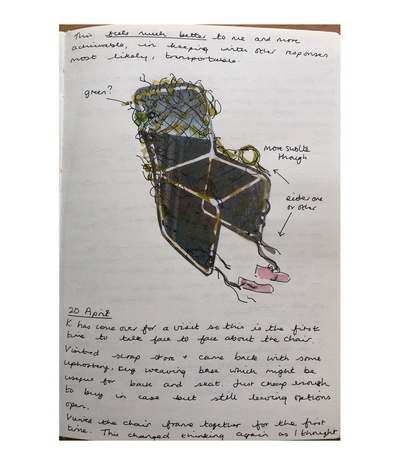 This feels much better to me and more
achievable, in keeping with other responses
most likely, transportable.
green?
more subtle
though
either one
or other
20 April
K has come over for a visit so this is the first
time to talk face to face about the chair.
Visited scrap store + came back with some
upholstery, rug weaving base which might be
useful for back and seat. Just cheap enough
to buy in case but still leaving options
open.
the chair frame together for the first
time. This changed thinking again as I thought